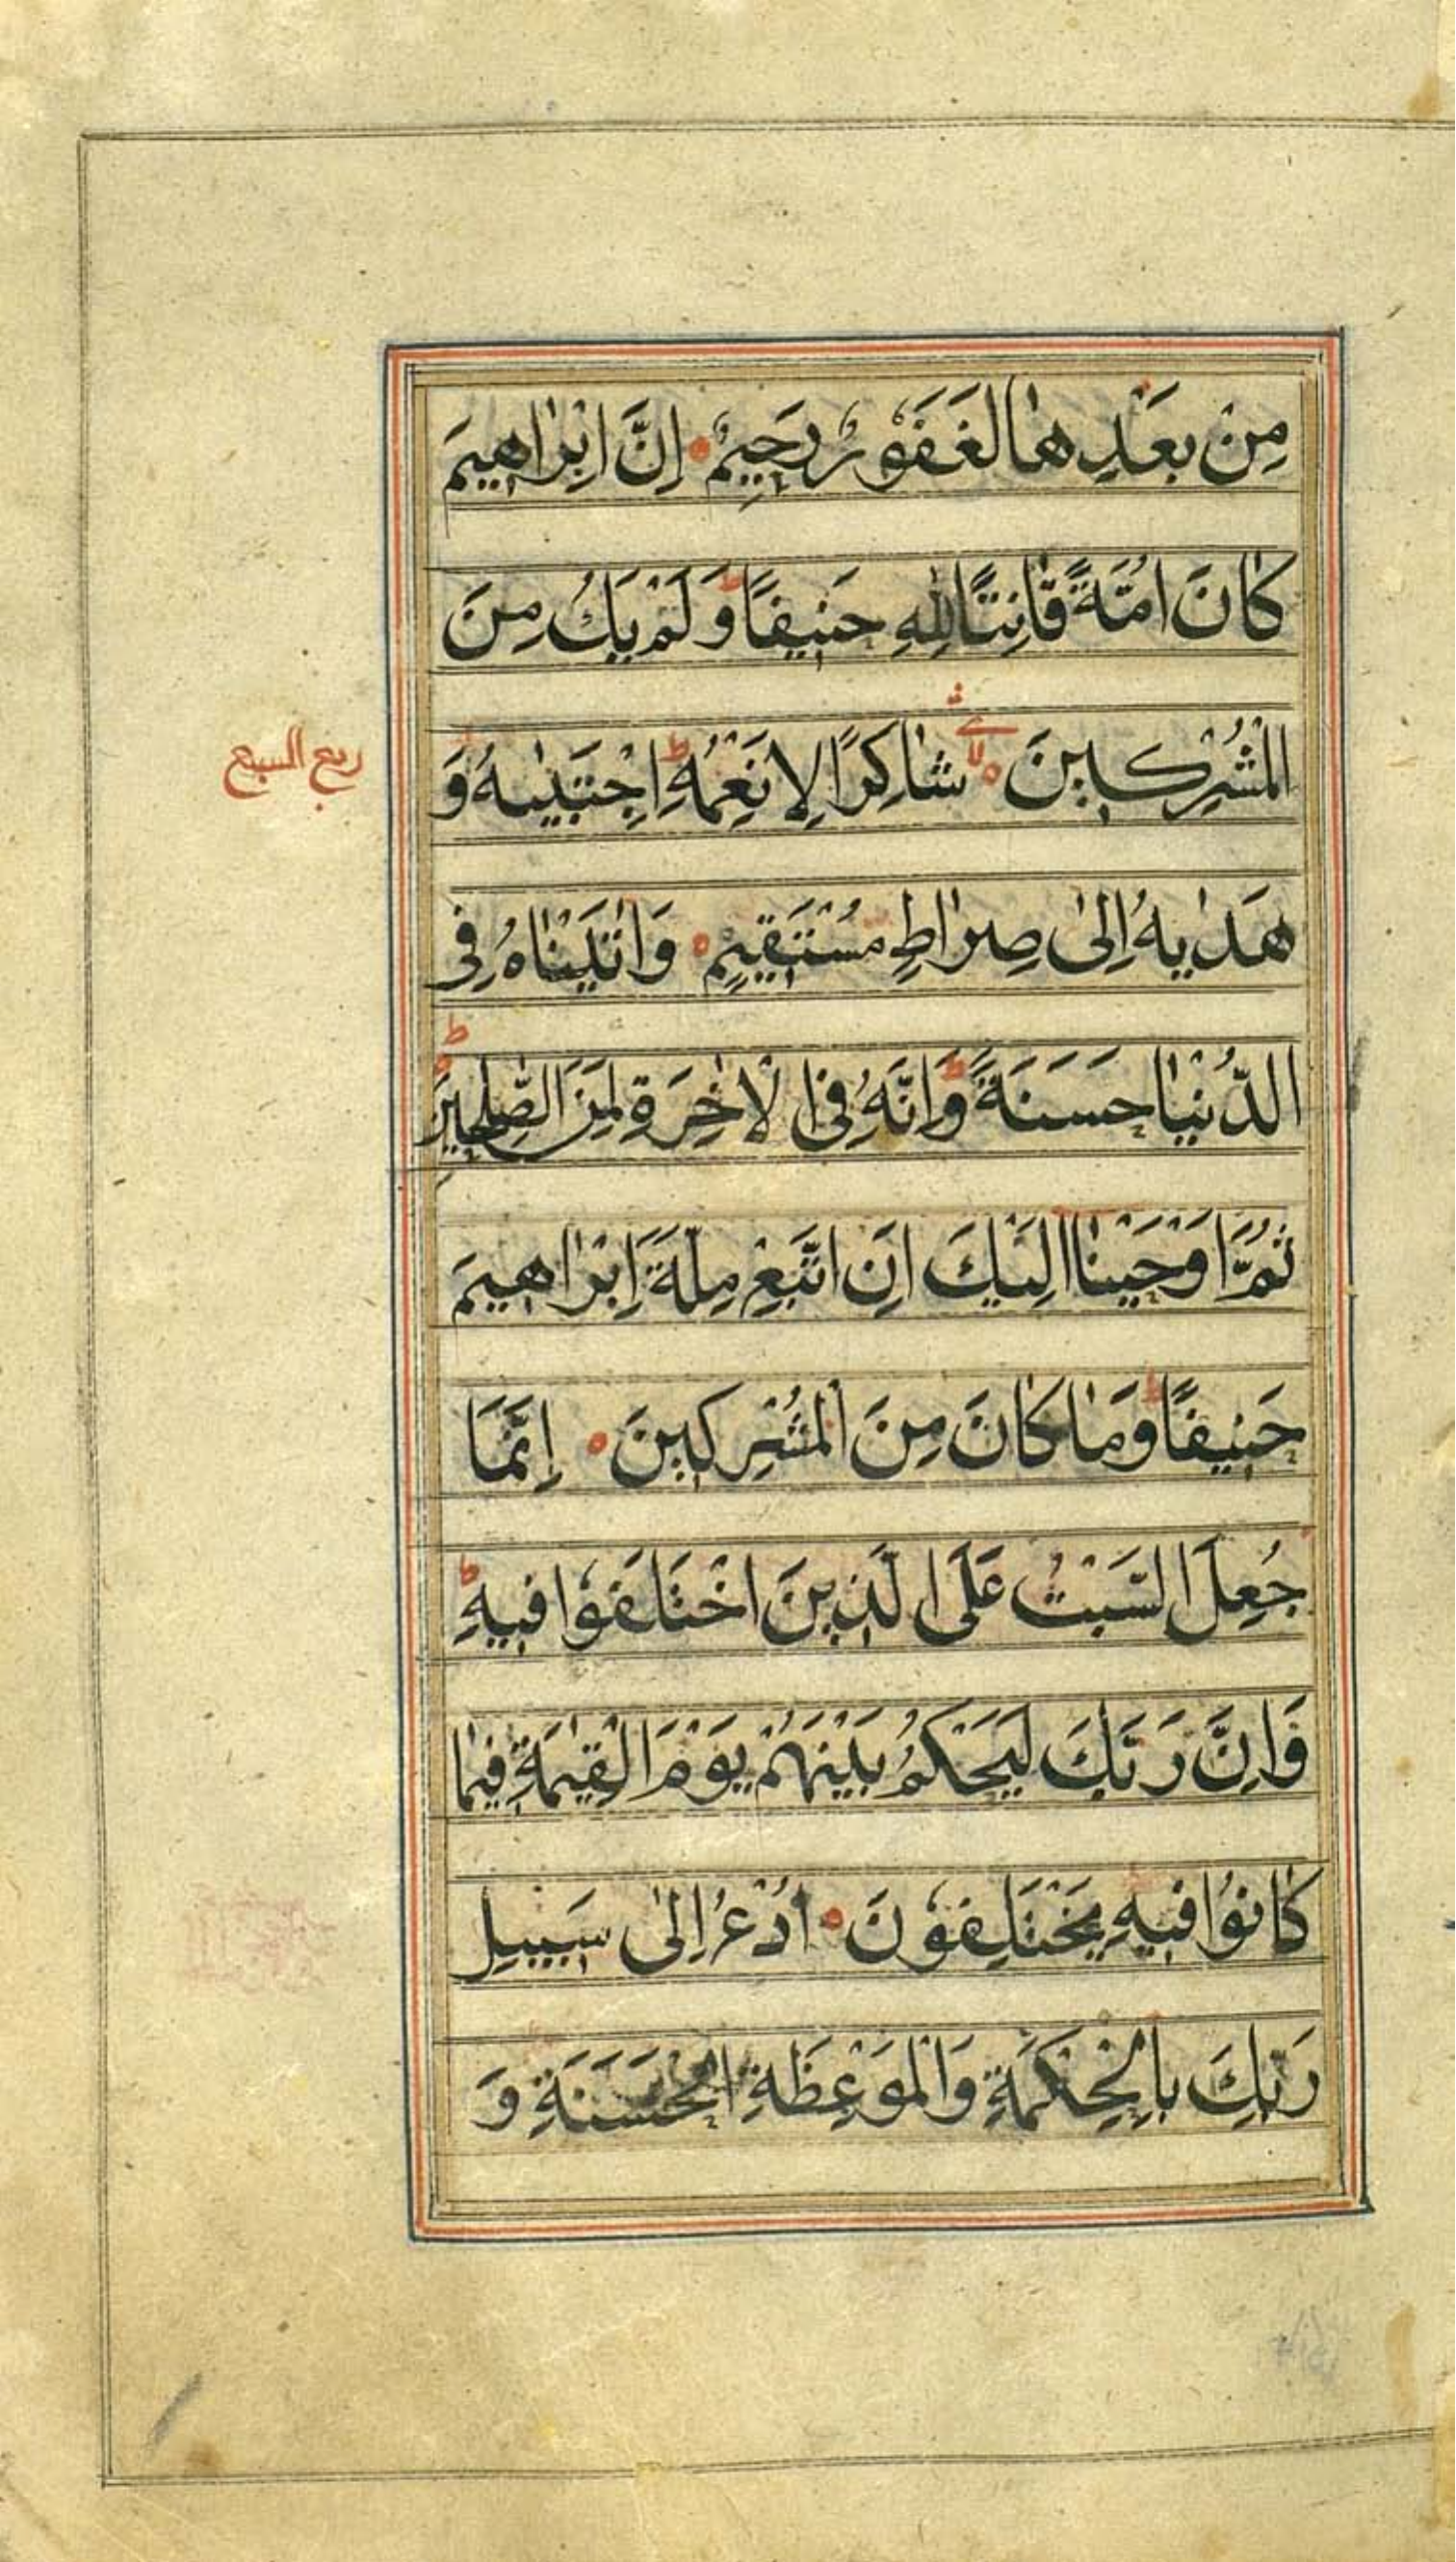 مِنْ بَعْدِهَا لَغَفُوْرٌ رَحِيْمٌ اِنَّ اِبْرَاهِيْمَ
كَانَ اُمَّةً قَانِتًا لِلّٰهِ حَنِيْفًا ط وَلَمْ يَكُ مِنَ
الْمُشْرِكِيْنَ لا شَاكِرًا لِاَنْعُمِهِ ط اِجْتَبٰيهُ وَ
ربع السبع
هَدٰيهُ اِلٰى صِرَاطٍ مُسْتَقِيْمٍ وَاٰتَيْنَاهُ فِى
الدُّنْيَا حَسَنَةً ط وَاِنَّهُ فِى الْاٰخِرَةِ لَمِنَ الصّٰلِحِيْنَ ط
ثُمَّ اَوْحَيْنَا اِلَيْكَ اَنِ اتَّبِعْ مِلَّةَ اِبْرَاهِيْمَ
حَنِيْفًا ط وَمَا كَانَ مِنَ الْمُشْرِكِيْنَ اِنَّمَا
جُعِلَ السَّبْتُ عَلَى الَّذِيْنَ اخْتَلَفُوْا فِيْهِ ط
وَاِنَّ رَبَّكَ لَيَحْكُمُ بَيْنَهُمْ يَوْمَ الْقِيٰمَةِ فِيْمَا
كَانُوْا فِيْهِ يَخْتَلِفُوْنَ اُدْعُ اِلٰى سَبِيْلِ
رَبِّكَ بِالْحِكْمَةِ وَالْمَوْعِظَةِ الْحَسَنَةِ وَ